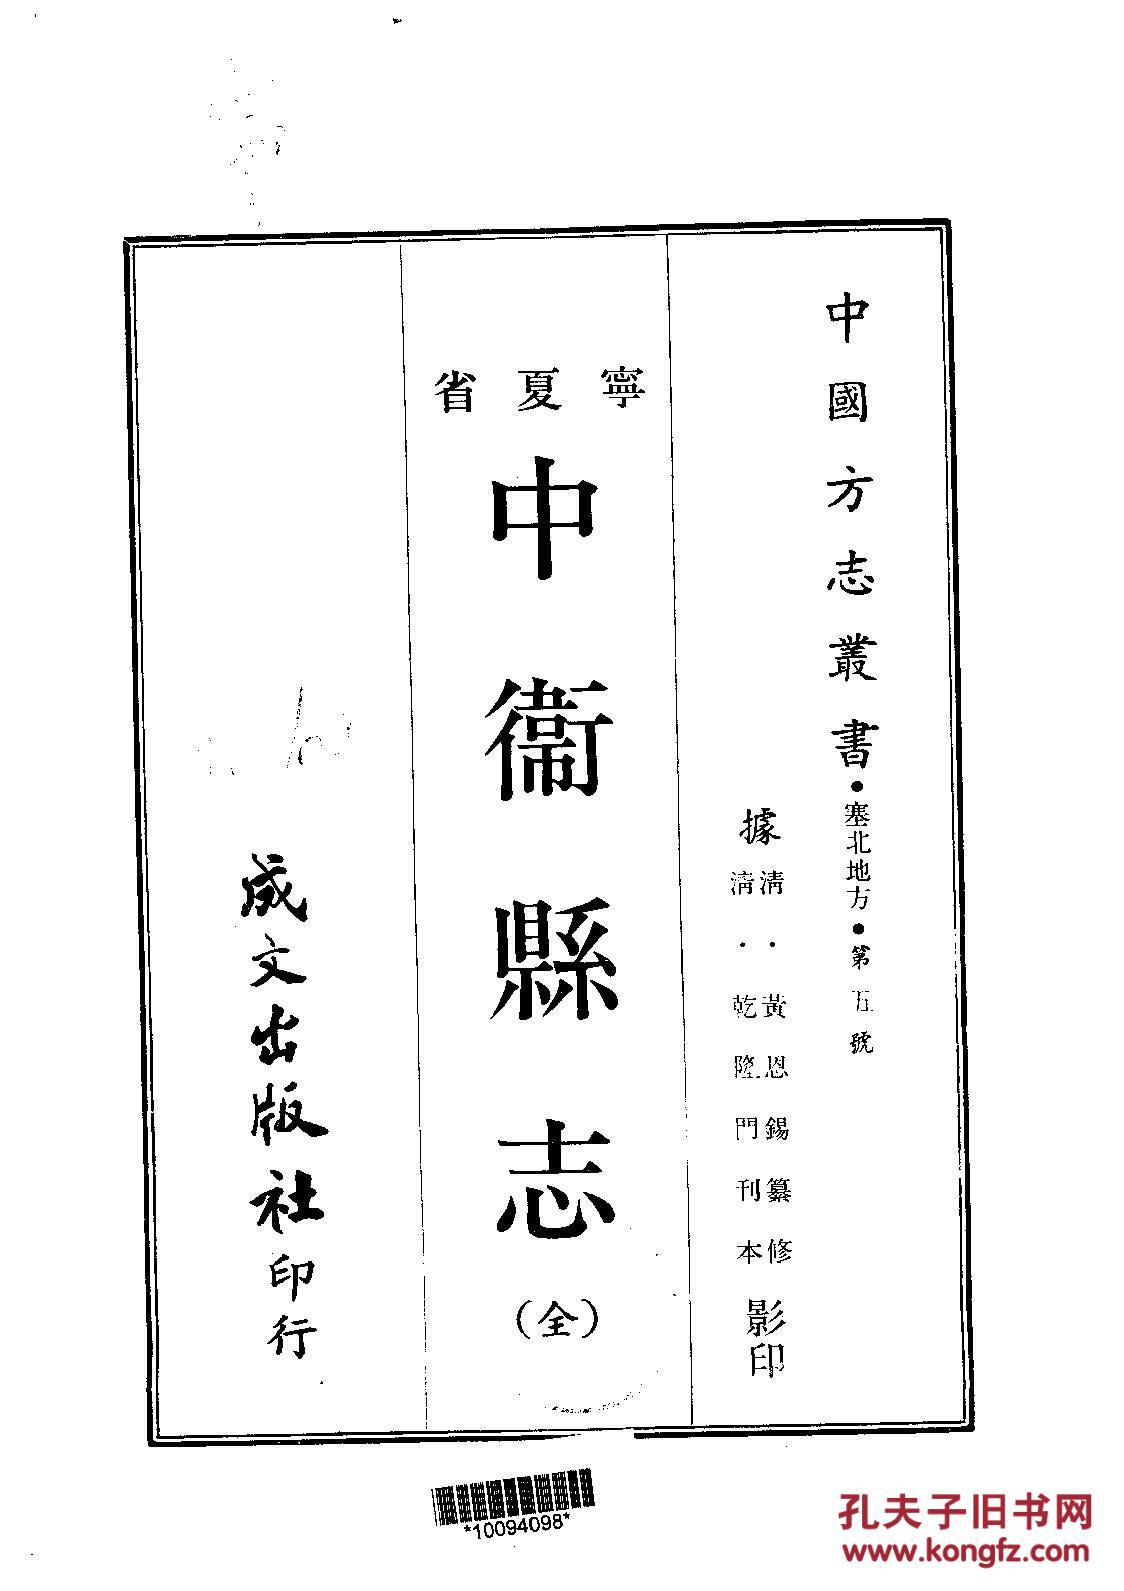 中國方志叢書•塞北地方•第五號
據
清·黃恩錫纂修
清·乾隆門刊本
影印
寧夏省
中衞縣志
(全)
成文出版社印行
*10094098*
孔夫子旧书网
www.kongfz.com